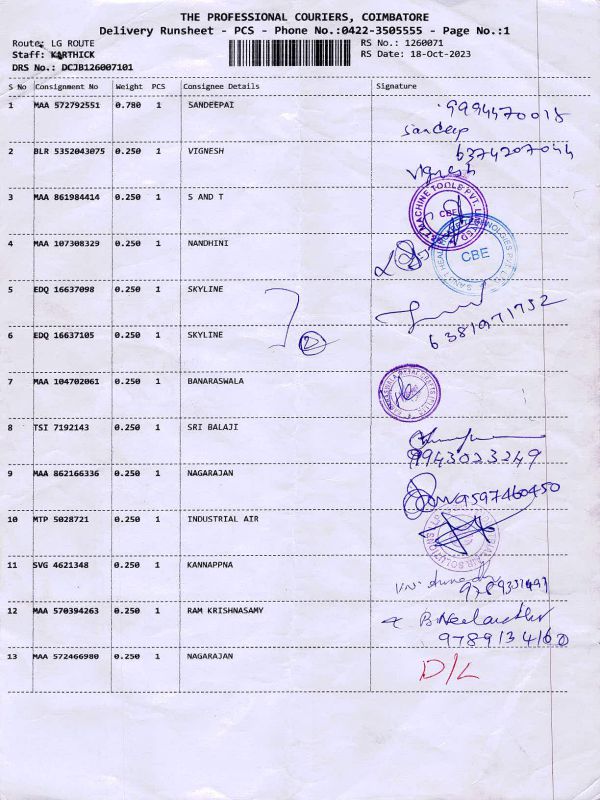 THE PROFESSIONAL COURIERS, COIMBATORE
Delivery Runsheet - PCS - Phone No.:0422-3505555 - Page No.:1
Route: LG ROUTE RS No.: 1260071
Staff: KARTHICK RS Date: 18-Oct-2023
DRS No.: DCJB126007101
S No Consignment No Weight PCS Consignee Details Signature
1 MAA 572792551 0.780 1 SANDEEPAI 9994570018
Sandeep
2 BLR 5352043075 0.250 1 VIGNESH 6374207044
Vignesh
3 MAA 861984414 0.250 1 S AND T
CBE
4 MAA 107308329 0.250 1 NANDHINI CBE
5 EDQ 16637098 0.250 1 SKYLINE
6381971752
6 EDQ 16637105 0.250 1 SKYLINE 2
7 MAA 104702061 0.250 1 BANARASWALA
8 TSI 7192143 0.250 1 SRI BALAJI
9943023249
9 MAA 862166336 0.250 1 NAGARAJAN 9597460450
10 MTP 5028721 0.250 1 INDUSTRIAL AIR
11 SVG 4621348 0.250 1 KANNAPPNA
9789331491
12 MAA 570394263 0.250 1 RAM KRISHNASAMY
9789134160
13 MAA 572466980 0.250 1 NAGARAJAN D/L